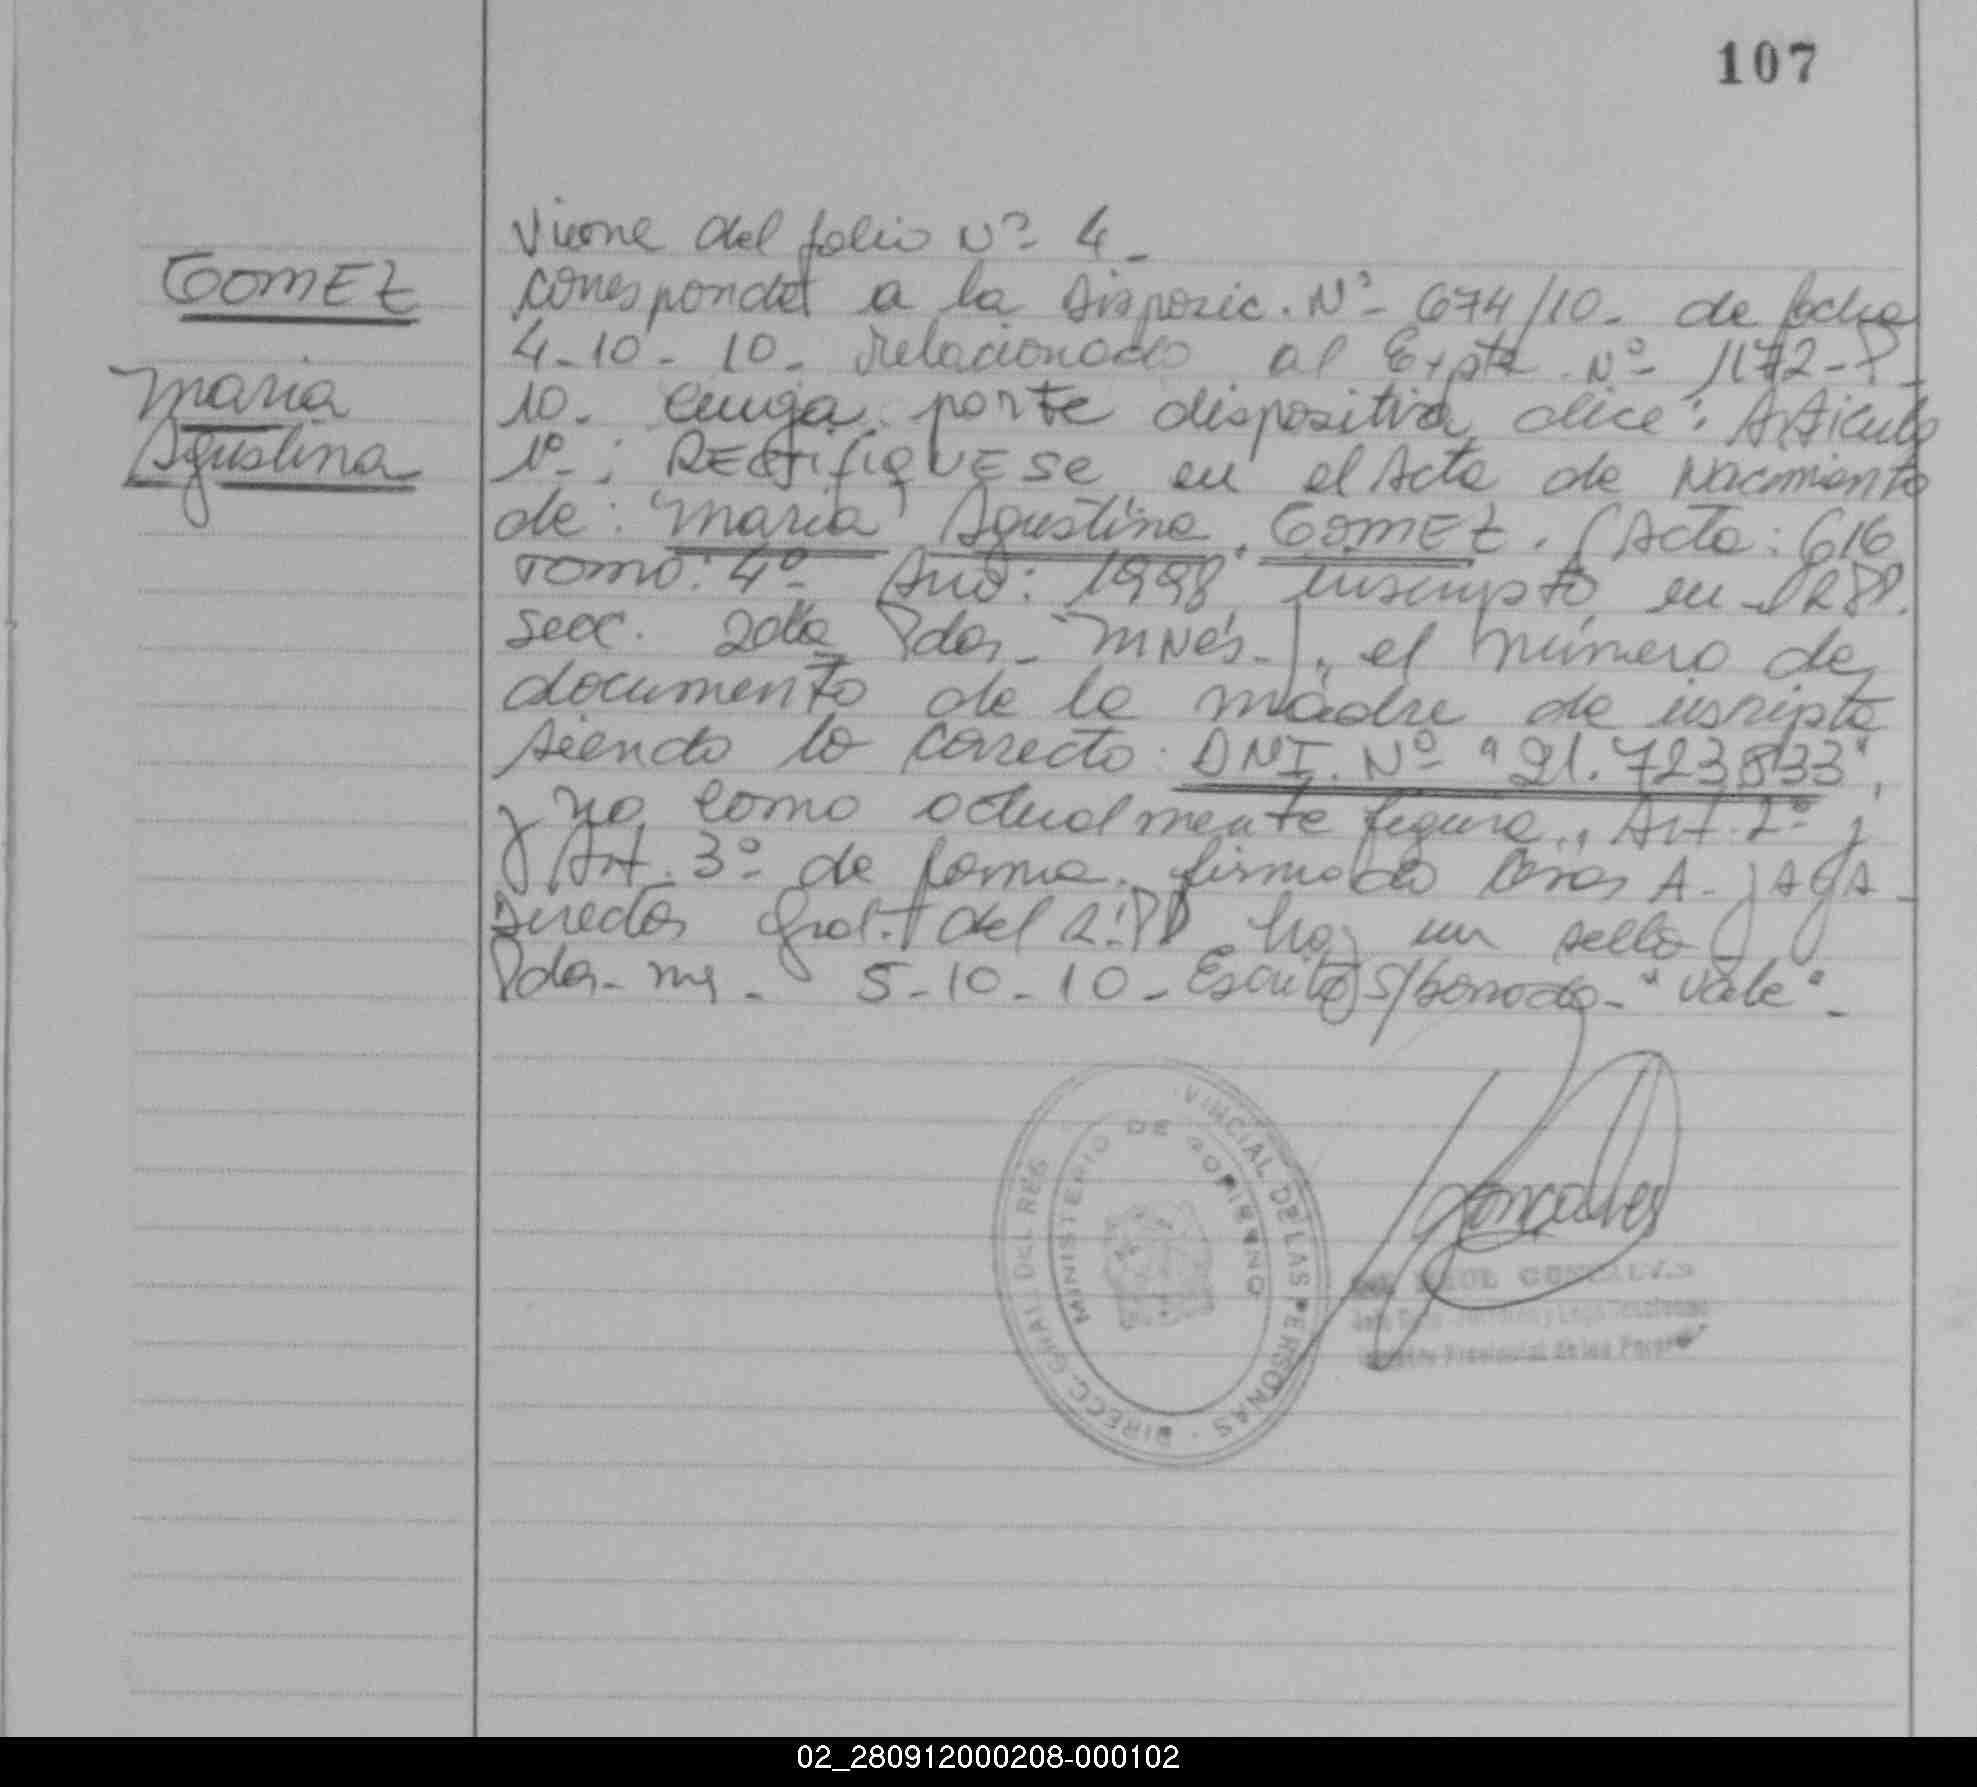 107
GOMEZ
Maria
Agustina
Viene del folio Nº 4_
corresponde a la Disposic. Nº 674/10_ de fecha
4-10-10_ Relacionado al Expte Nº 1172-P-
10_ cuya parte dispositiva dice: Articulo
1º_: RECTifiQUESE en el Acta de Nacimiento
de: "Maria Agustina GOMEZ. (Acta: 616
Tomo: 4º Año: 1998 inscripto en el R.P.P.
secc. 2da Pdas_ Mnes_), el número de
documento de la madre de iscripta
siendo lo correcto: DNI. Nº "21.723833",
y no como actualmente figura., Art. 2º y
Art. 3º de forma. firmado A.
Director Gral. del R.P.P. hay un sello
Pdas_ ms_ 5-10-10_ Escrito s/borrado_ "Vale"_
VINCIAL DE LAS PERSONAS · DIRECC. GRAL. DEL REG
MINISTERIO DE GOBIERNO
Goncalves
GONCALVES
Provincial de las
02_280912000208-000102